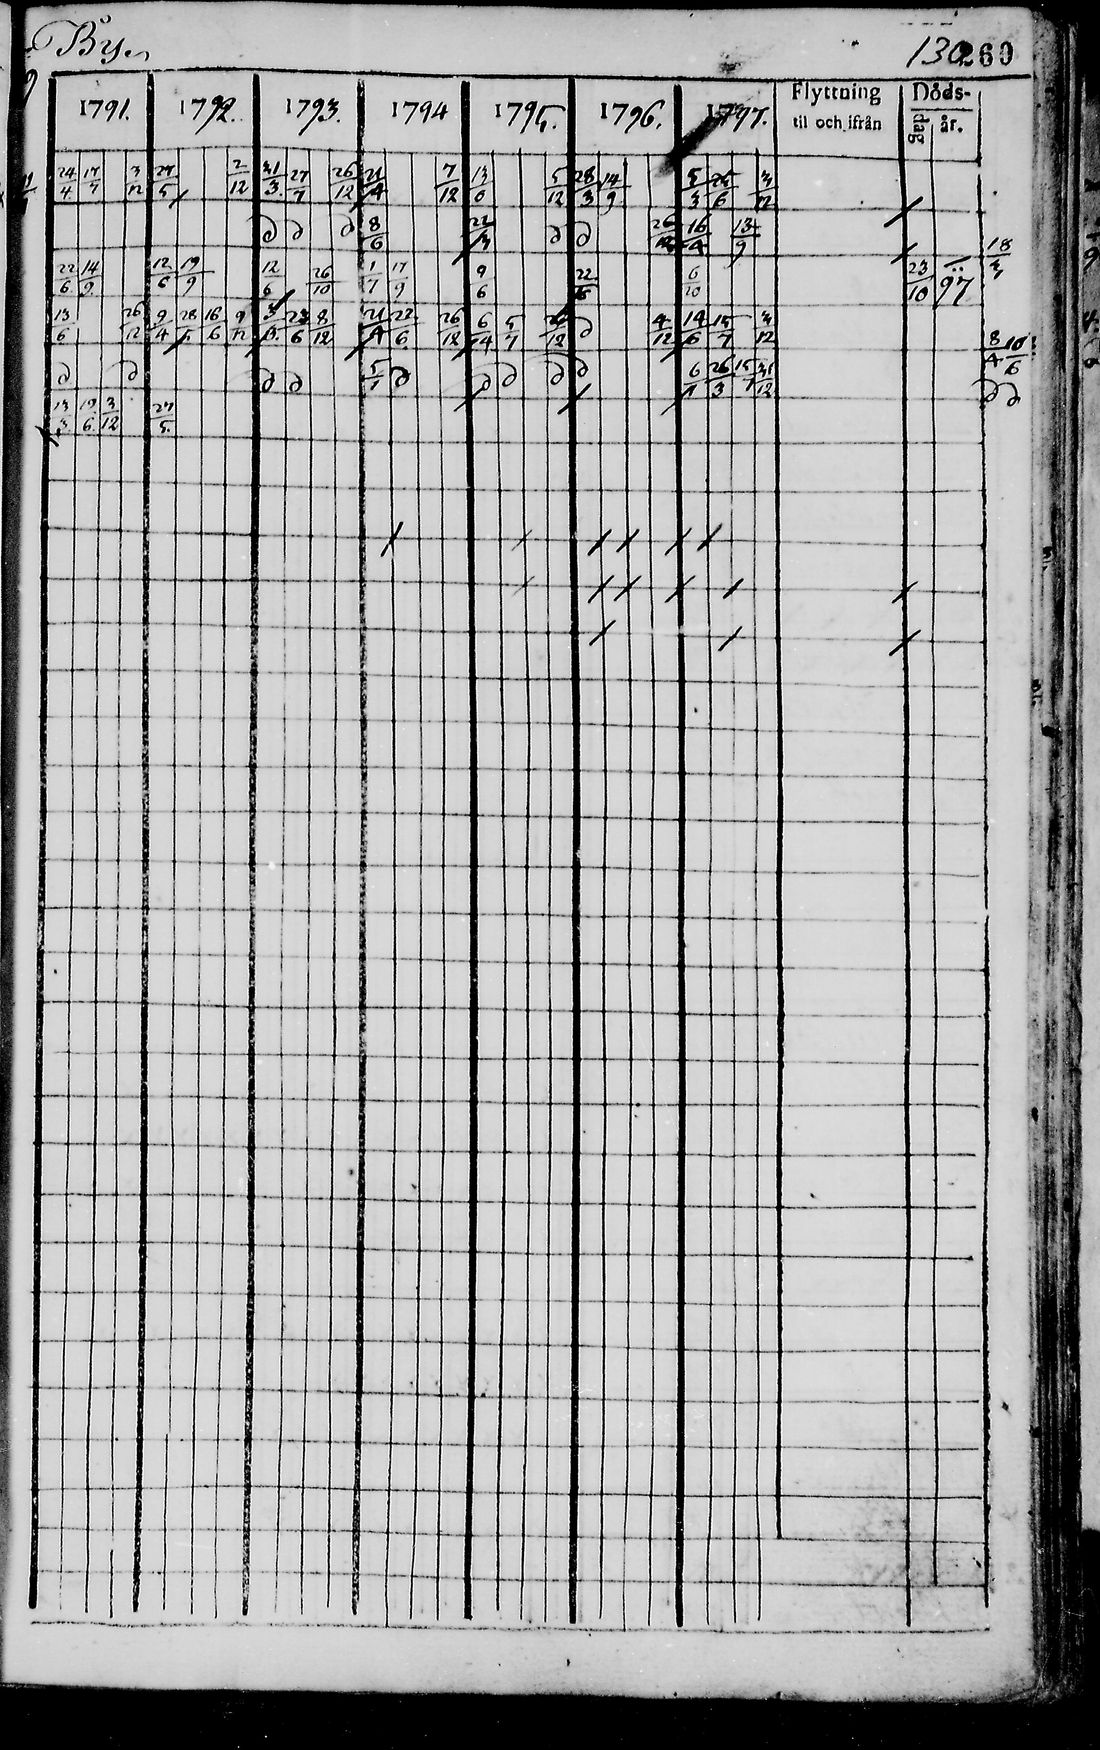 By.
130 260
1791. 1792. 1793. 1794 1795. 1796. 1797. Flyttning til och ifrån Döds- dag år.
24/4 17/7 3/12 27/5 2/12 31/3. 27/7 26/12 21/4 7/12 13/6 5/12 28/3 14/9 5/3 25/6 3/12
∂ ∂ ∂ 8/6 ∂ ∂ 26/12 16/4 13/9
22/6 14/9. 12/6 19/9 12/6 26/10 1/7 17/9 9/6 6/10 23/10 97 18/3
13/6 26/12 9/4 28/5 16/6 9/12 23/6 8/12 21/4 22/6. 26/12 6/4 5/7 26/12 ∂ 4/12 19/6 15/7 3/12 8/4 10/6
∂ ∂ ∂ ∂ 5/1 ∂ ∂ ∂ ∂ ∂ 6/1 26/3 15/7 31/12 ∂ ∂
13/3. 19/6. 3/12 27/5.